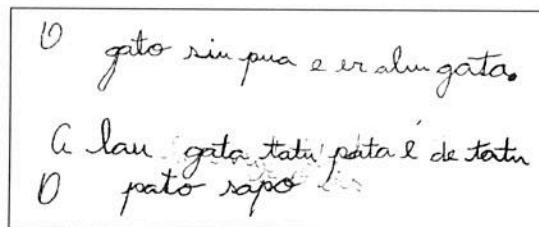 O gato sin pua e er alun gata.
A lau gata tatu pata é de tatu
O pato sapo